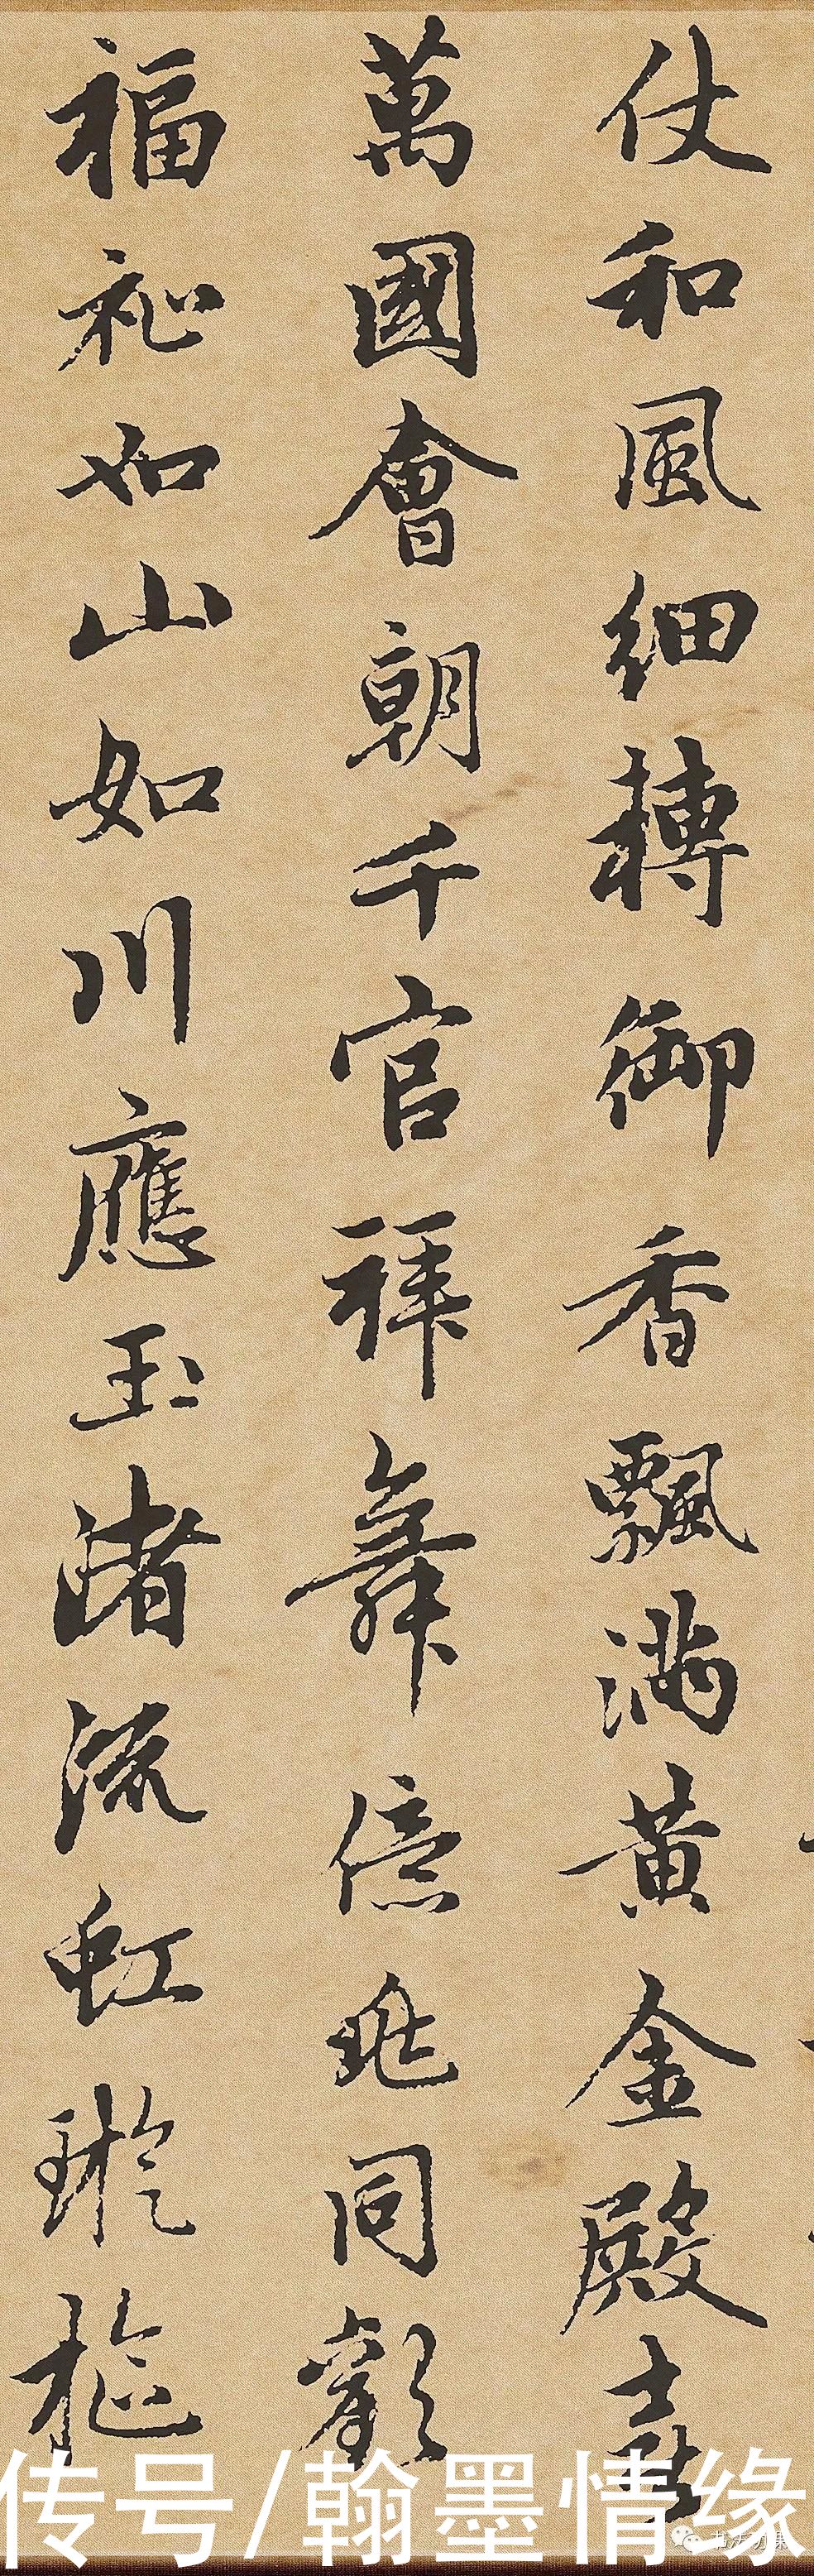 仗和風細轉御香飄滿黄金殿喜
萬國會朝千官拜舞億兆同歡
福祉如山如川應玉渚流虹璇樞
传号/翰墨情缘